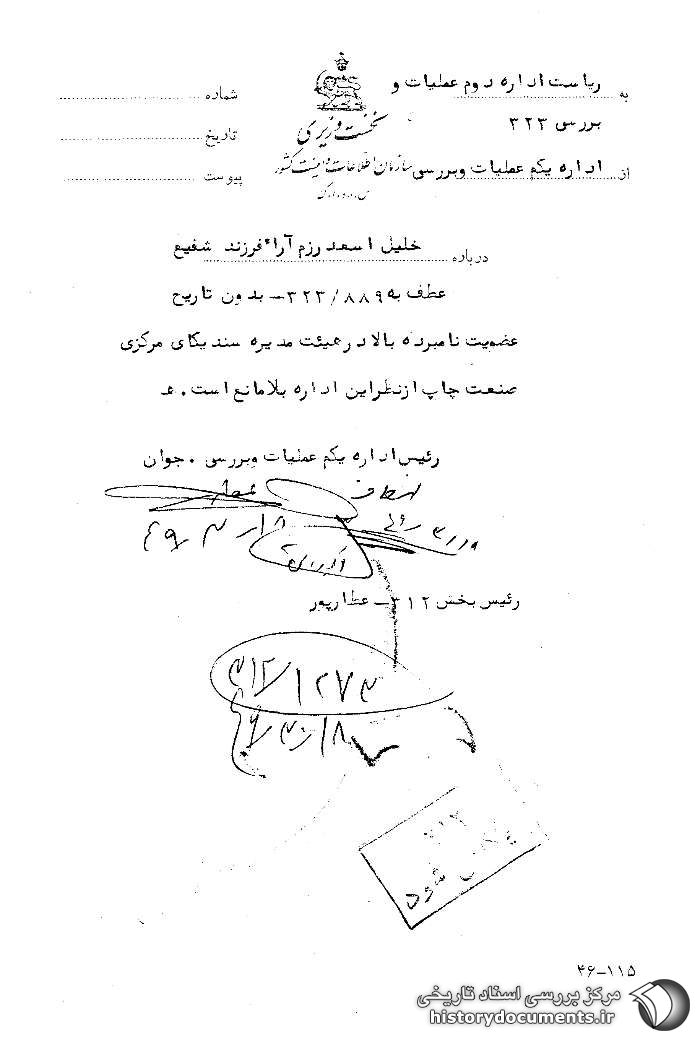 به ریاست اداره دوم عملیات و
بررسی ۳۲۳
از اداره یکم عملیات وبررسی
نخست وزیری
سازمان اطلاعات و امنیت کشور
س.ا.و.ا.ک
شماره
تاریخ
پیوست
درباره خلیل اسعد رزم آرا فرزند شفیع
عطف به ۳۲۳/۸۸۹ - بدون تاریخ
عضویت نامبرده بالا در هیئت مدیره سندیکای مرکزی
صنعت چاپ ازنظراین اداره بلامانع است. ع
رئیس اداره یکم عملیات وبررسی. جوان
رئیس بخش ۳۱۲ - عطارپور
۳۱۲/۱۲۷۳
۴۶/۳/۱۸
۳۱۲
شود
۴۶-۱۱۵
مرکز بررسی اسناد تاریخی
historydocuments.ir